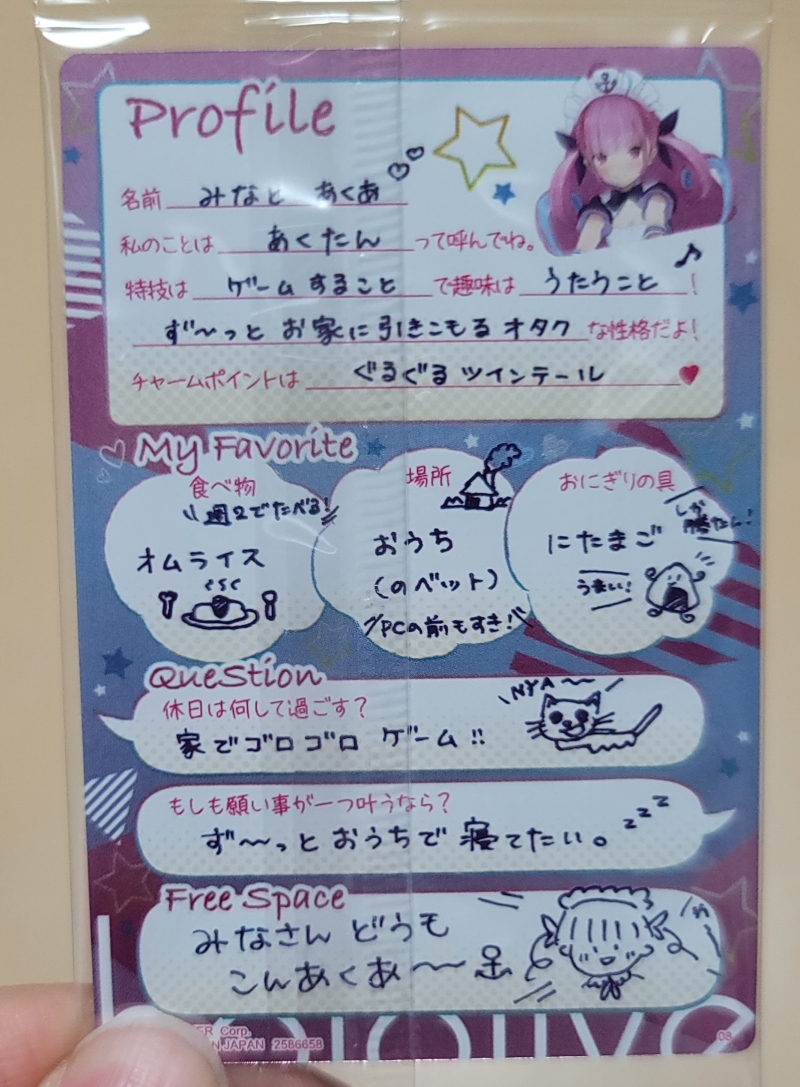 Profile
名前 みなと あくあ
私のことは あくたん って呼んでね。
特技は ゲームすること で趣味は うたうこと !
ず〜っと お家に引きこもるオタク な性格だよ!
チャームポイントは ぐるぐるツインテール
My Favorite
食べ物
週2でたべる!
オムライス
場所
おうち
(のベット)
PCの前もすき!
おにぎりの具
しか
勝たん!
にたまご
うまい!
Question
休日は何して過ごす?
NYA〜
家でゴロゴロ ゲーム!!
もしも願い事が一つ叶うなら?
ず〜っと おうちで 寝てたい。zzz
Free Space
みなさん どうも
こんあくあ〜
ER Corp.
N JAPAN 2586658
08
hololive